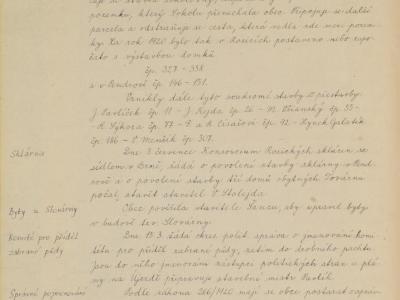 pozemku, který Sokolu přenechala obec. Připojuje se další
parcela a odstraňuje se cesta, která vedla zde mezi pozem-
ky. Za rok 1920 bylo tak v Rosicích postaveno nebo zapo-
čato s výstavbou domků
čp. 327 - 338
a v Pendrově čp. 146 - 151.
Vznikly dále tyto soukromé stavby a přestavby:
J. Pavlíček čp. 11 - J. Kejda čp. 26 -
R. Sýkora čp. 77 - F. a R. Císařovi čp. 92 - Hynek Galatík
čp. 186 - T. Menšík čp. 307.
Sklárna
Dne 3. července Konsorcium Rosických skláren se
sídlem v Brně, žádá o povolení stavby sklárny v Pend-
rově a o povolení stavby tří domů obytných. Továrnu
počal stavět stavitel T. Stolejda
Byty u Slovárny
Obec pověřila stavitele Fanzu, aby upravil byty
v budově tzv. Slovárny.
Komité pro příděl
zabrané půdy
Dne 13.3. žádá okres. polit. správa o jmenování komi-
tétu pro příděl zabrané půdy, zatím do drobného pachtu
Jsou do něho jmenováni zástupci politických stran a plá-
ny na Újezdě připravuje stavební mistr Pavlík.
Správní pojmenování
Podle zákona 266/1920 mají se obce postarat o správ-